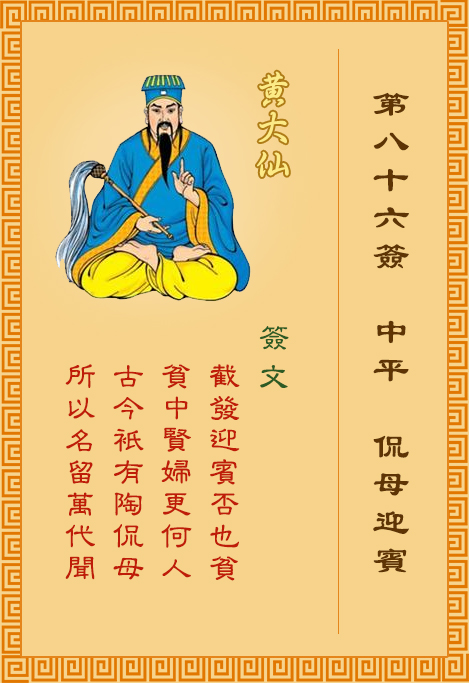 第八十六簽 中平 侃母迎賓
黃大仙
簽文
截發迎賓否也貧
貧中賢婦更何人
古今衹有陶侃母
所以名留萬代聞